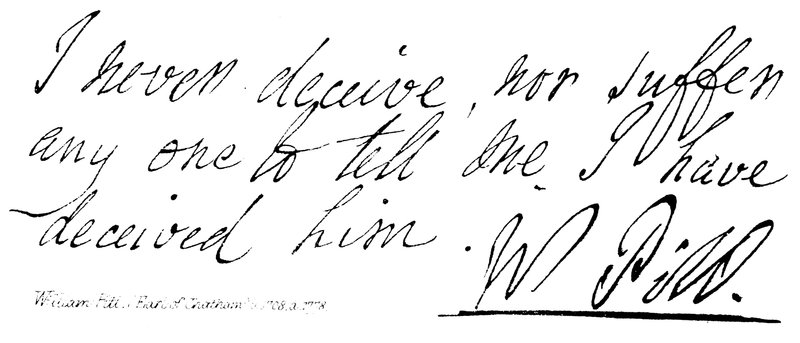 I never deceive, nor suffer
any one to tell me I have
deceived him.
W Pitt.
William Pitt, Earl of Chatham b. 1708, d. 1778